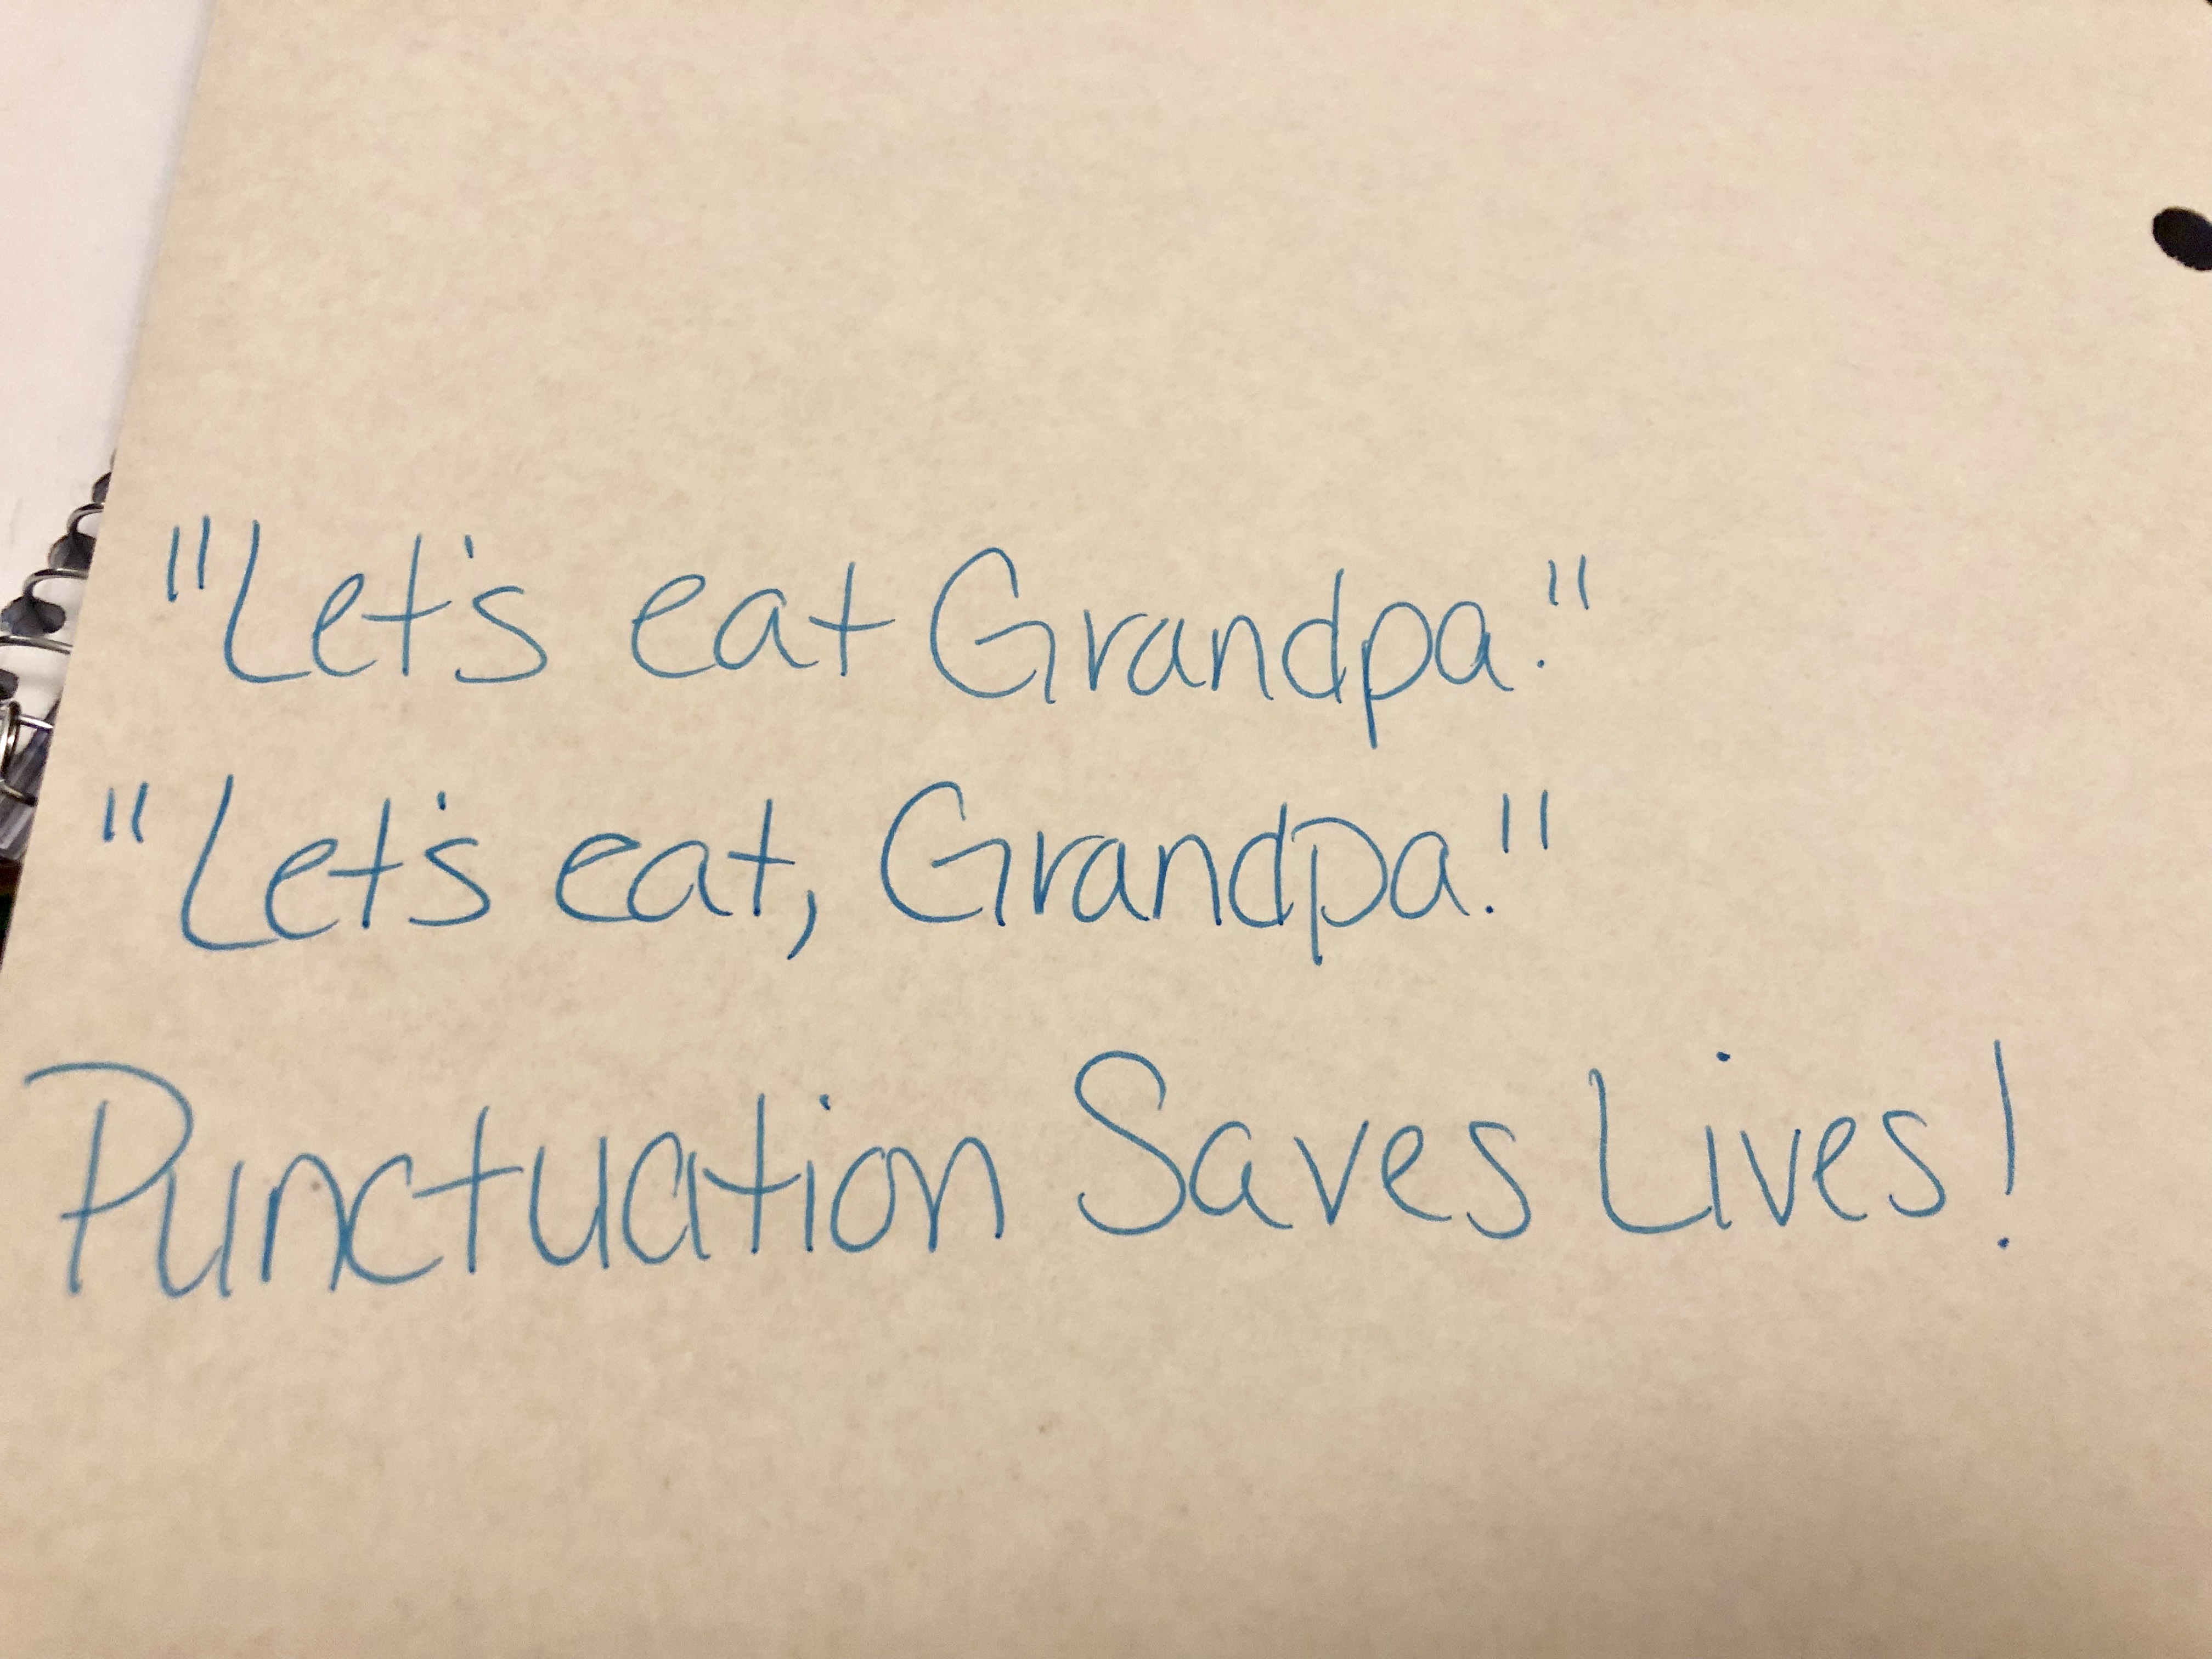 "Let's eat Grandpa."
"Let's eat, Grandpa."
Punctuation Saves Lives!